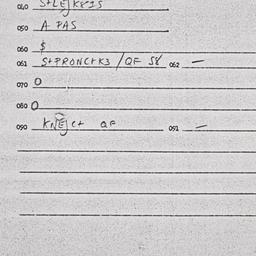 040 S+LEJK8IS
050 A PAS
060 $
061 S+PRONC+K3 / QF 58 062 —
070 O
080 O
090 KNEJC+ QF 091 —